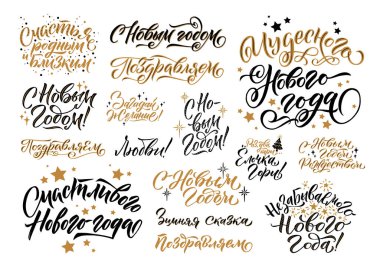 Счастья
родным
и близким
С Новым годом
Поздравляем
Чудесного
Нового
года!
С Новым
Годом!
Загадай
Желание!
С Но-
вым
Годом!
Поздравляем
Любви!
Ёлочка
Гори!
С Новым
Годом и
Рождеством
Счастливого
Нового года
С Новым
Годом
Зимняя Сказка
Поздравляем
Незабываемого
Нового
Года!